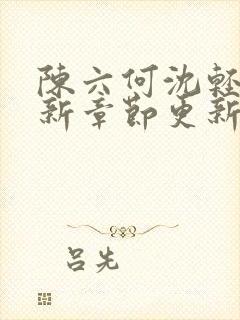 陳六何沈輕
新章節更新
呂先